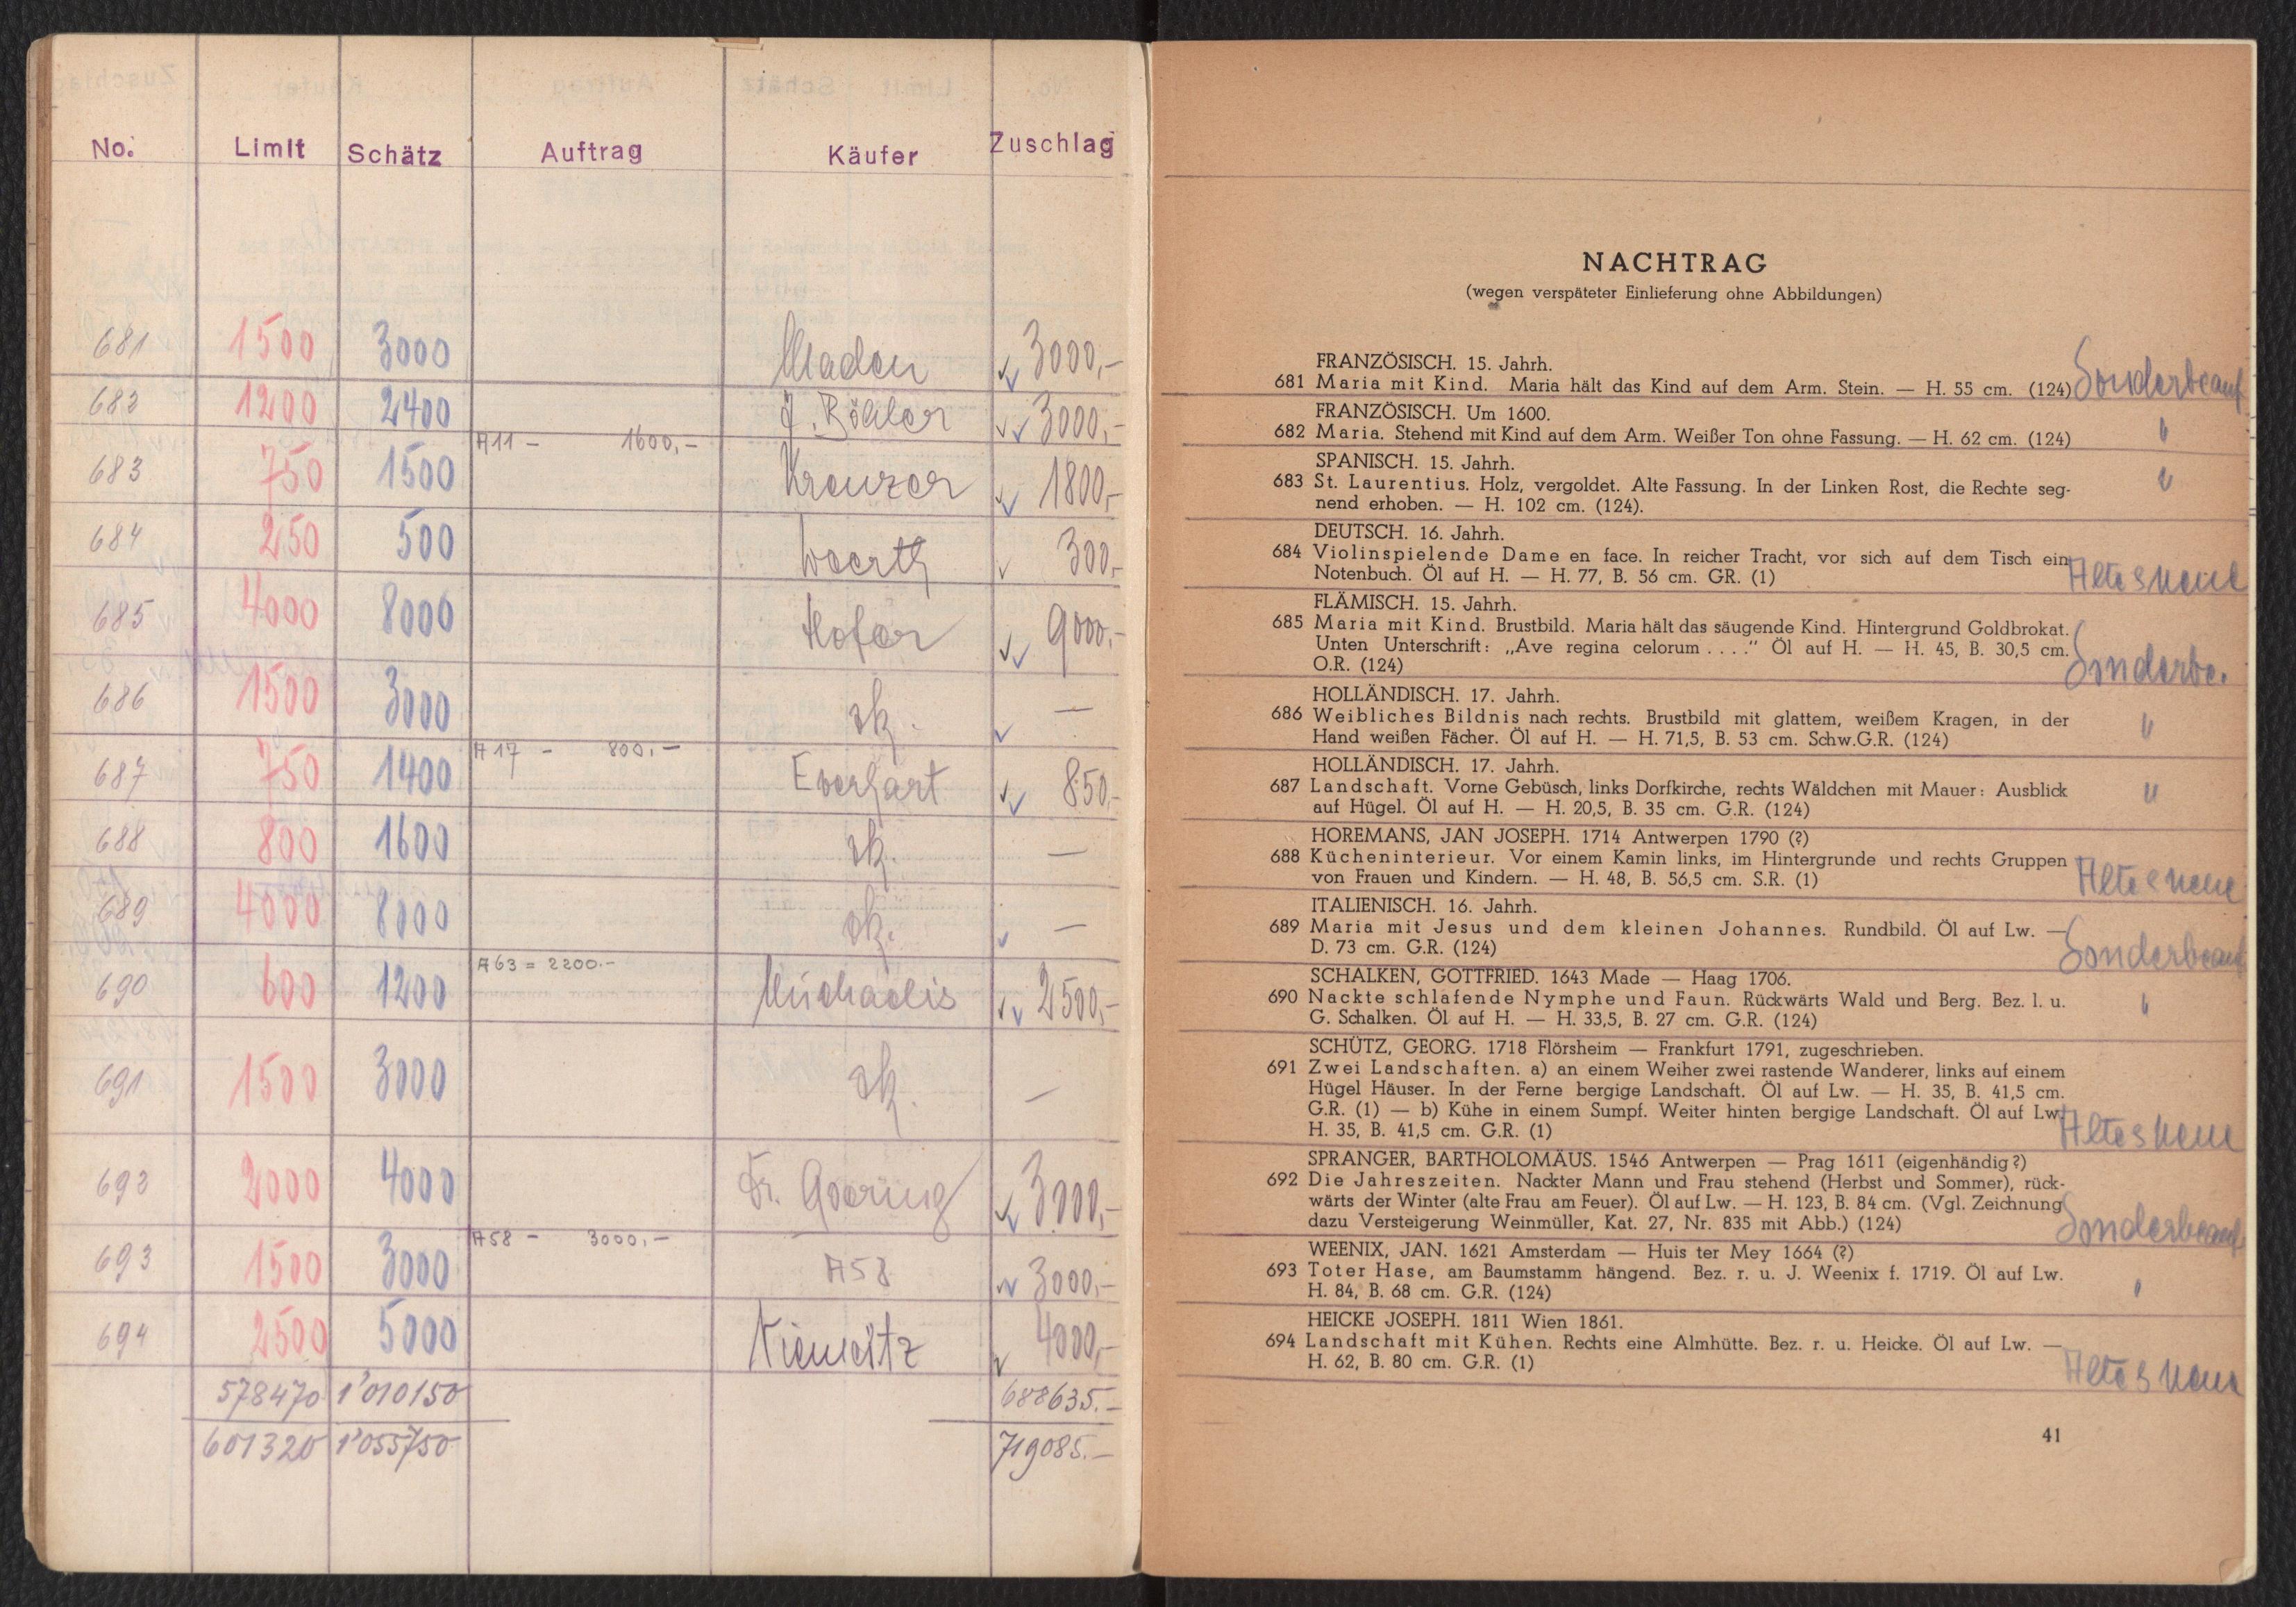 No. Limit Schätz Auftrag Käufer Zuschlag
681 1500 3000 Madon 3000,-
682 1200 2400 J. Böhler 3000,-
683 750 1500 A11 - 1600,- Kreuzer 1800,-
684 250 500 Woerth 300,-
685 4000 8000 Hofer 9000,-
686 1500 3000 zk. —
687 750 1400 A17 - 800,- Everhart 850,-
688 800 1600 zk. —
689 4000 8000 zk. —
690 600 1200 A63 = 2200.- Michaelis 2500,-
691 1500 3000 zk. —
692 2000 4000 Fr. Goering 3000,-
693 1500 3000 A58 - 3000,- A58 3000,-
694 2500 5000 4000,-
578470 1'010150 688635.-
601320 1'055750 719085.-
NACHTRAG
(wegen verspäteter Einlieferung ohne Abbildungen)
FRANZÖSISCH. 15. Jahrh.
681 Maria mit Kind. Maria hält das Kind auf dem Arm. Stein. — H. 55 cm. (124) Sonderbeauf
FRANZÖSISCH. Um 1600.
682 Maria. Stehend mit Kind auf dem Arm. Weißer Ton ohne Fassung. — H. 62 cm. (124) "
SPANISCH. 15. Jahrh.
683 St. Laurentius. Holz, vergoldet. Alte Fassung. In der Linken Rost, die Rechte seg- "
nend erhoben. — H. 102 cm. (124).
DEUTSCH. 16. Jahrh.
684 Violinspielende Dame en face. In reicher Tracht, vor sich auf dem Tisch ein
Notenbuch. Öl auf H. — H. 77, B. 56 cm. GR. (1) Altes neue
FLÄMISCH. 15. Jahrh.
685 Maria mit Kind. Brustbild. Maria hält das säugende Kind. Hintergrund Goldbrokat.
Unten Unterschrift: „Ave regina celorum . . . ." Öl auf H. — H. 45, B. 30,5 cm.
O.R. (124) Sonderbe.
HOLLÄNDISCH. 17. Jahrh.
686 Weibliches Bildnis nach rechts. Brustbild mit glattem, weißem Kragen, in der "
Hand weißen Fächer. Öl auf H. — H. 71,5, B. 53 cm. Schw.G.R. (124)
HOLLÄNDISCH. 17. Jahrh.
687 Landschaft. Vorne Gebüsch, links Dorfkirche, rechts Wäldchen mit Mauer: Ausblick "
auf Hügel. Öl auf H. — H. 20,5, B. 35 cm. G.R. (124)
HOREMANS, JAN JOSEPH. 1714 Antwerpen 1790 (?)
688 Kücheninterieur. Vor einem Kamin links, im Hintergrunde und rechts Gruppen
von Frauen und Kindern. — H. 48, B. 56,5 cm. S.R. (1) Altes neue
ITALIENISCH. 16. Jahrh.
689 Maria mit Jesus und dem kleinen Johannes. Rundbild. Öl auf Lw. —
D. 73 cm. G.R. (124) Sonderbeauf
SCHALKEN, GOTTFRIED. 1643 Made — Haag 1706.
690 Nackte schlafende Nymphe und Faun. Rückwärts Wald und Berg. Bez. l. u. "
G. Schalken. Öl auf H. — H. 33,5, B. 27 cm. G.R. (124)
SCHÜTZ, GEORG. 1718 Flörsheim — Frankfurt 1791, zugeschrieben.
691 Zwei Landschaften. a) an einem Weiher zwei rastende Wanderer, links auf einem
Hügel Häuser. In der Ferne bergige Landschaft. Öl auf Lw. — H. 35, B. 41,5 cm.
G.R. (1) — b) Kühe in einem Sumpf. Weiter hinten bergige Landschaft. Öl auf Lw.
H. 35, B. 41,5 cm. G.R. (1) Altes neue
SPRANGER, BARTHOLOMÄUS. 1546 Antwerpen — Prag 1611 (eigenhändig?)
692 Die Jahreszeiten. Nackter Mann und Frau stehend (Herbst und Sommer), rück-
wärts der Winter (alte Frau am Feuer). Öl auf Lw. — H. 123, B. 84 cm. (Vgl. Zeichnung
dazu Versteigerung Weinmüller, Kat. 27, Nr. 835 mit Abb.) (124) Sonderbeauf
WEENIX, JAN. 1621 Amsterdam — Huis ter Mey 1664 (?)
693 Toter Hase, am Baumstamm hängend. Bez. r. u. J. Weenix f. 1719. Öl auf Lw. "
H. 84, B. 68 cm. G.R. (124)
HEICKE JOSEPH. 1811 Wien 1861.
694 Landschaft mit Kühen. Rechts eine Almhütte. Bez. r. u. Heicke. Öl auf Lw. —
H. 62, B. 80 cm. G.R. (1) Altes neue
41